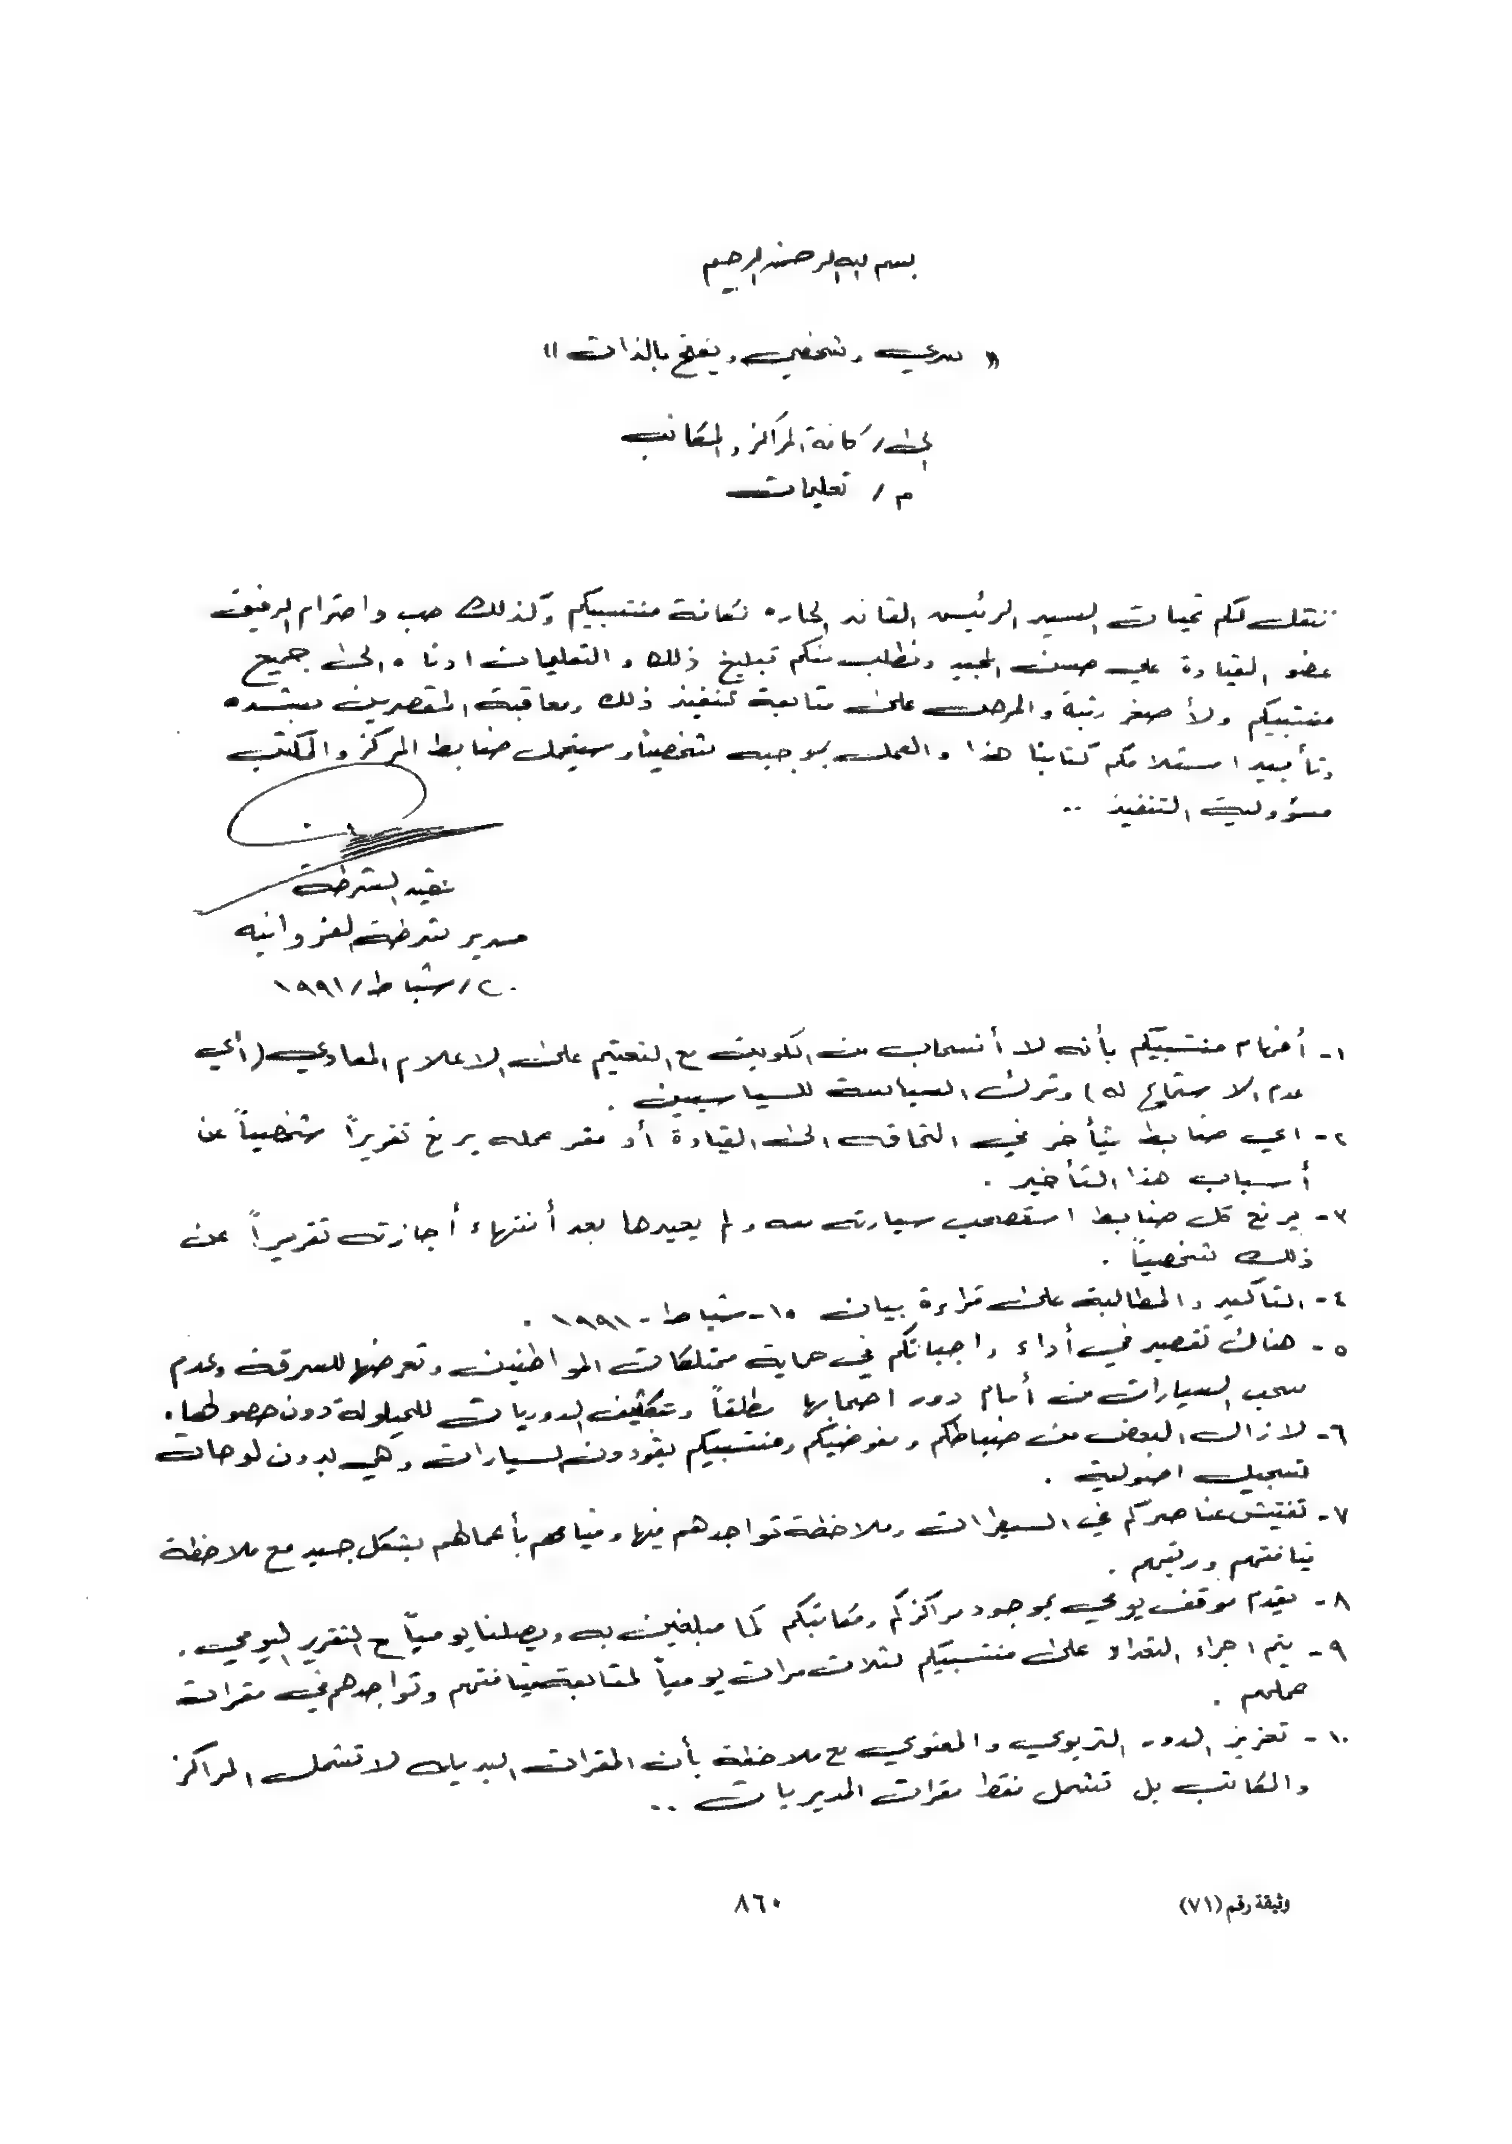 بسم الله الرحمن الرحيم
« سري وشخصي ويفتح بالذات »
الى / كافة المراكز والمكاتب
م / تعليمات
ننقل لكم تحيات السيد الرئيس القائد لكافة منتسبيكم وكذلك حب واحترام الرفيق
عضو القيادة علي حسن المجيد ونطلب منكم تبليغ ذلك والتعليمات ادناه الى جميع
منتسبيكم ولأصغر رتبة والحرص على متابعة تنفيذ ذلك ومعاقبة المقصرين بشده
وتأييد استلامكم كتابنا هذا والعمل بموجبه شخصياً وسيتحمل ضابط المركز والمكتب
مسؤولية التنفيذ ..
عقيد الشرطة
مدير شرطة الفروانيه
٢٠/شباط/١٩٩١
١- أفهام منتسبيكم بأنه لا أنسحاب من الكويت مع التعتيم على الاعلام المعادي (أي
عدم الاستماع له) وترك السياسة للسياسيين .
٢- اي ضابط يتأخر في التحاقه الى القيادة أو مقر عمله يرفع تقريراً شخصياً عن
أسباب هذا التأخير .
٣- يرفع كل ضابط استصحب سيارته معه ولم يعيدها بعد أنتهاء أجازته تقريراً عن
ذلك شخصياً .
٤- التاكيد والمطالبة على قراءة بيان ١٥-شباط-١٩٩١ .
٥- هناك تقصير في أداء واجباتكم في حماية ممتلكات المواطنين وتعرضها للسرقة وعدم
سحب السيارات من أمام دور اصحابها مطلقاً وتكثيف الدوريات للحيلولة دون حصولها .
٦- لا زال البعض من ضباطكم ومفوضيكم ومنتسبيكم يقودون السيارات وهي بدون لوحات
تسجيل اصولية .
٧- تفتيش عناصركم في السيطرات وملاحظة تواجدهم فيها وقيامهم بأعمالهم بشكل جيد مع ملاحظة
قيافتهم ورتبهم .
٨- يقدم موقف يومي بموجود مراكزكم ومكاتبكم كما مبلغين به ويصلنا يومياً مع التقرير اليومي .
٩- يتم اجراء التعداد على منتسبيكم لثلاث مرات يومياً لمتابعة قيافتهم وتواجدهم في مقرات
عملهم .
١٠- تعزيز الدور التربوي والمعنوي مع ملاحظة بأن المقرات البديله لا تشمل المراكز
والمكاتب بل تشمل فقط مقرات المديريات ..
وثيقة رقم (٧١)
٨٦٠